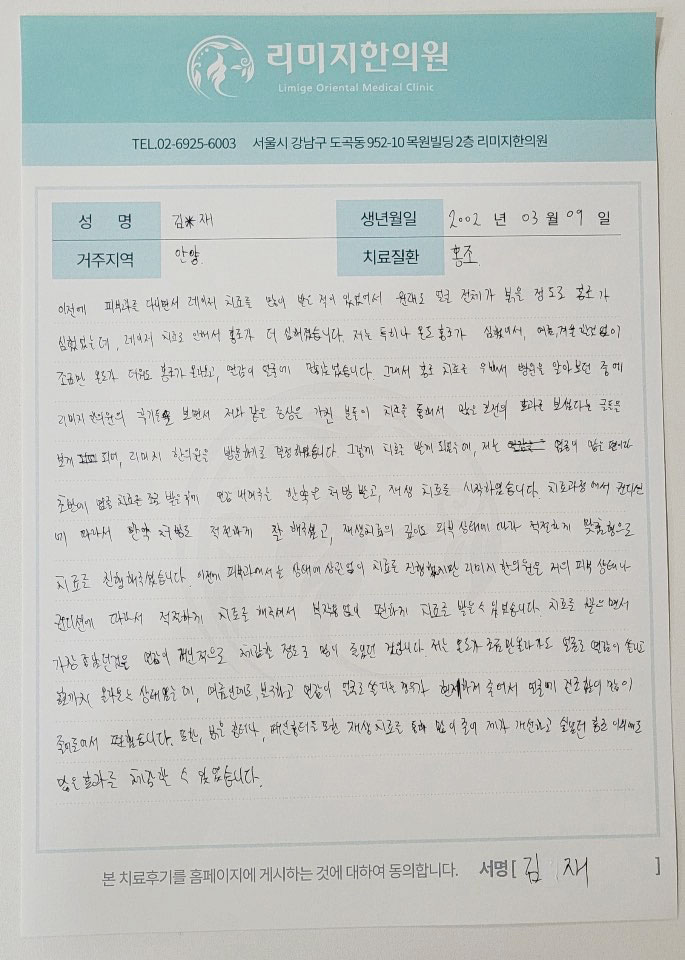 리미지한의원
Limige Oriental Medical Clinic
TEL.02-6925-6003 서울시 강남구 도곡동 952-10 목원빌딩 2층 리미지한의원
성 명 김*재 생년월일 2002 년 03 월 09 일
거주지역 안양 치료질환 홍조
이전에 피부과를 다니면서 레이저 치료를 많이 받은 적이 있었어서 원래도 얼굴 전체가 붉을 정도로 홍조가
심했었는데, 레이저 치료로 인해서 홍조가 더 심해졌습니다. 저는 특히나 온도 홍조가 심했어서, 여름, 겨울 할것 없이
조금만 온도가 더워도 홍조가 올라오고, 열감이 얼굴에 많았습니다. 그래서 홍조 치료를 위해서 병원을 알아보던 중에
리미지 한의원의 후기들을 보면서 저와 같은 증상을 가진 분들이 치료를 통해서 많은 호전의 효과를 보셨다는 글들을
보게 되어, 리미지 한의원을 방문하기로 결정하였습니다. 그렇게 치료를 받게 되었는데, 저는 열감이 많은 편이라
초반에 열감 치료를 조금 받은 뒤에 열감 내려주는 한약을 처방 받고, 재생 치료를 시작하였습니다. 치료과정에서 컨디션
에 따라서 한약 처방도 적절하게 잘 해주셨고, 재생치료의 깊이도 피부 상태에 따라 적절하게 맞춤형으로
치료를 진행해주셨습니다. 이전에 피부과에서는 상태에 상관 없이 치료를 진행했지만 리미지 한의원은 저의 피부 상태나
컨디션에 따라서 적절하게 치료를 해주셔서 부작용 없이 편하게 치료를 받을 수 있었습니다. 치료를 받으면서
가장 좋았던것은 열감이 전반적으로 체감할 정도로 많이 줄었던 것입니다. 저는 온도가 조금만 올라가도 얼굴로 열감이 쏠리고
올라오는 상태였는데, 여름인데도 불구하고 열감이 얼굴로 쏠리는 경우가 현저하게 줄어서 얼굴에 건조함이 많이
줄어들어서 편했습니다. 또한, 붉은 흉터나, 패인흉터들 또한 재생치료를 통해 많이 줄어 제가 개선하고 싶었던 홍조 이외에도
많은 효과를 체감할 수 있었습니다.
본 치료후기를 홈페이지에 게시하는 것에 대하여 동의합니다. 서명 [ 김 재 ]